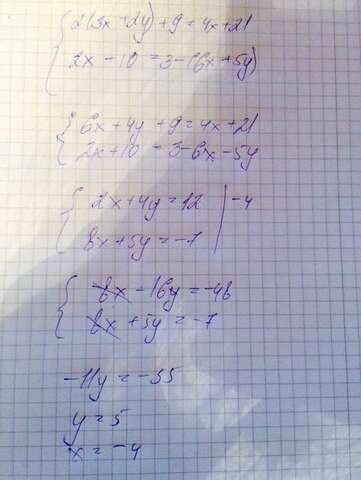 { 2(3x+2y)+9=4x+21
2x+10=3-(6x+5y)
{ 6x+4y+9=4x+21
2x+10=3-6x-5y
{ 2x+4y=12 | -4
8x+5y=-7
{ -8x-16y=-48
8x+5y=-7
-11y=-55
y=5
x=-4